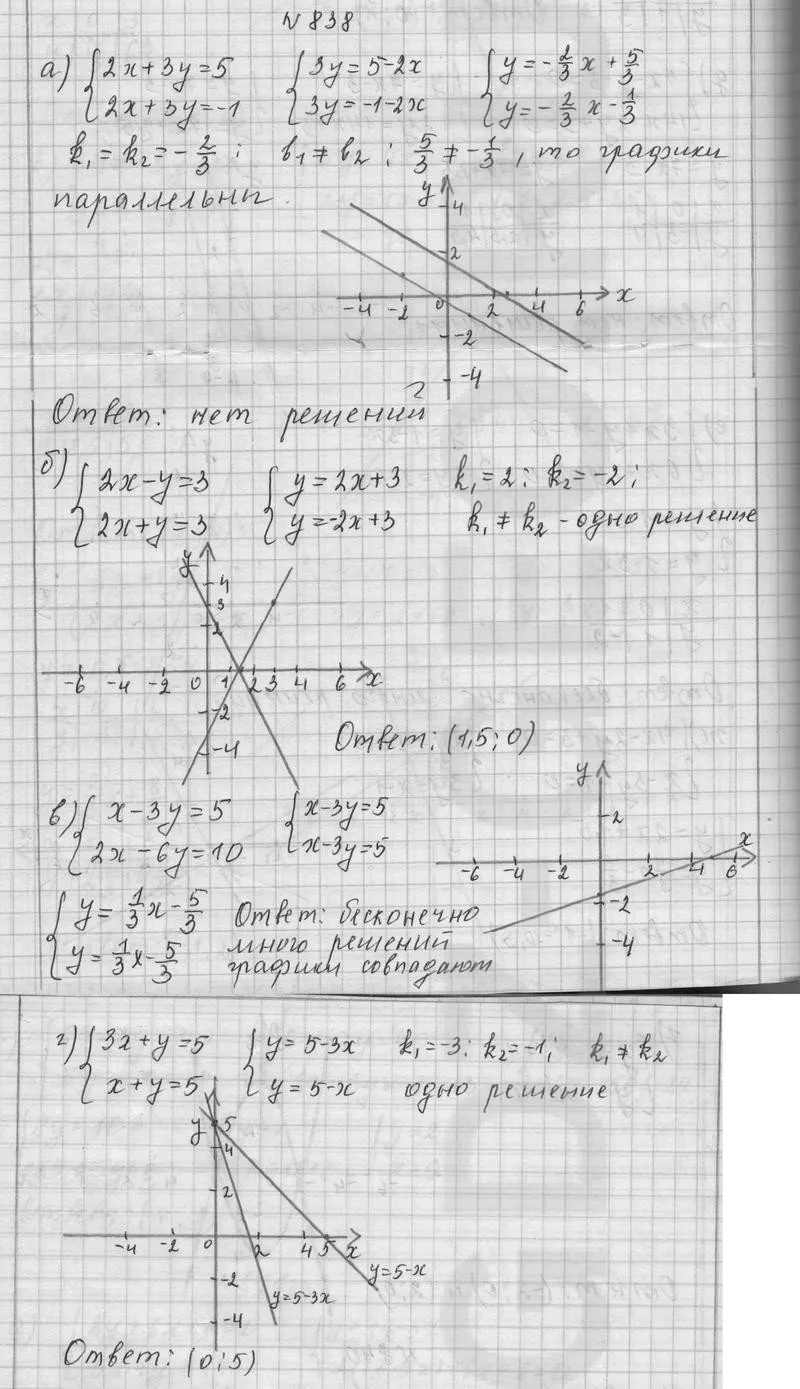 №838
а) {2x+3y=5 {3y=5-2x {y=-2/3x+5/3
{2x+3y=-1 {3y=-1-2x {y=-2/3x-1/3
k₁=k₂=-2/3; b₁≠b₂; 5/3≠-1/3, то графики
параллельны.
y
4
2
-4 -2 0 2 4 6 x
-2
-4
Ответ: нет решений
б) {2x-y=3 {y=2x+3 k₁=2; k₂=-2;
{2x+y=3 {y=-2x+3 k₁≠k₂ - одно решение
y
4
3
2
-6 -4 -2 0 1 2 3 4 6 x
-2
-4
Ответ: (1,5; 0)
в) {x-3y=5 {x-3y=5
{2x-6y=10 {x-3y=5
y
2
x
-6 -4 -2 2 4 6
-2
-4
{y=1/3x-5/3 Ответ: бесконечно
{y=1/3x-5/3 много решений
графики совпадают
г) {3x+y=5 {y=5-3x k₁=-3; k₂=-1; k₁≠k₂
{x+y=5 {y=5-x одно решение
y 5
4
2
-4 -2 0 2 4 5 x
-2
y=5-x
y=5-3x
-4
Ответ: (0; 5)